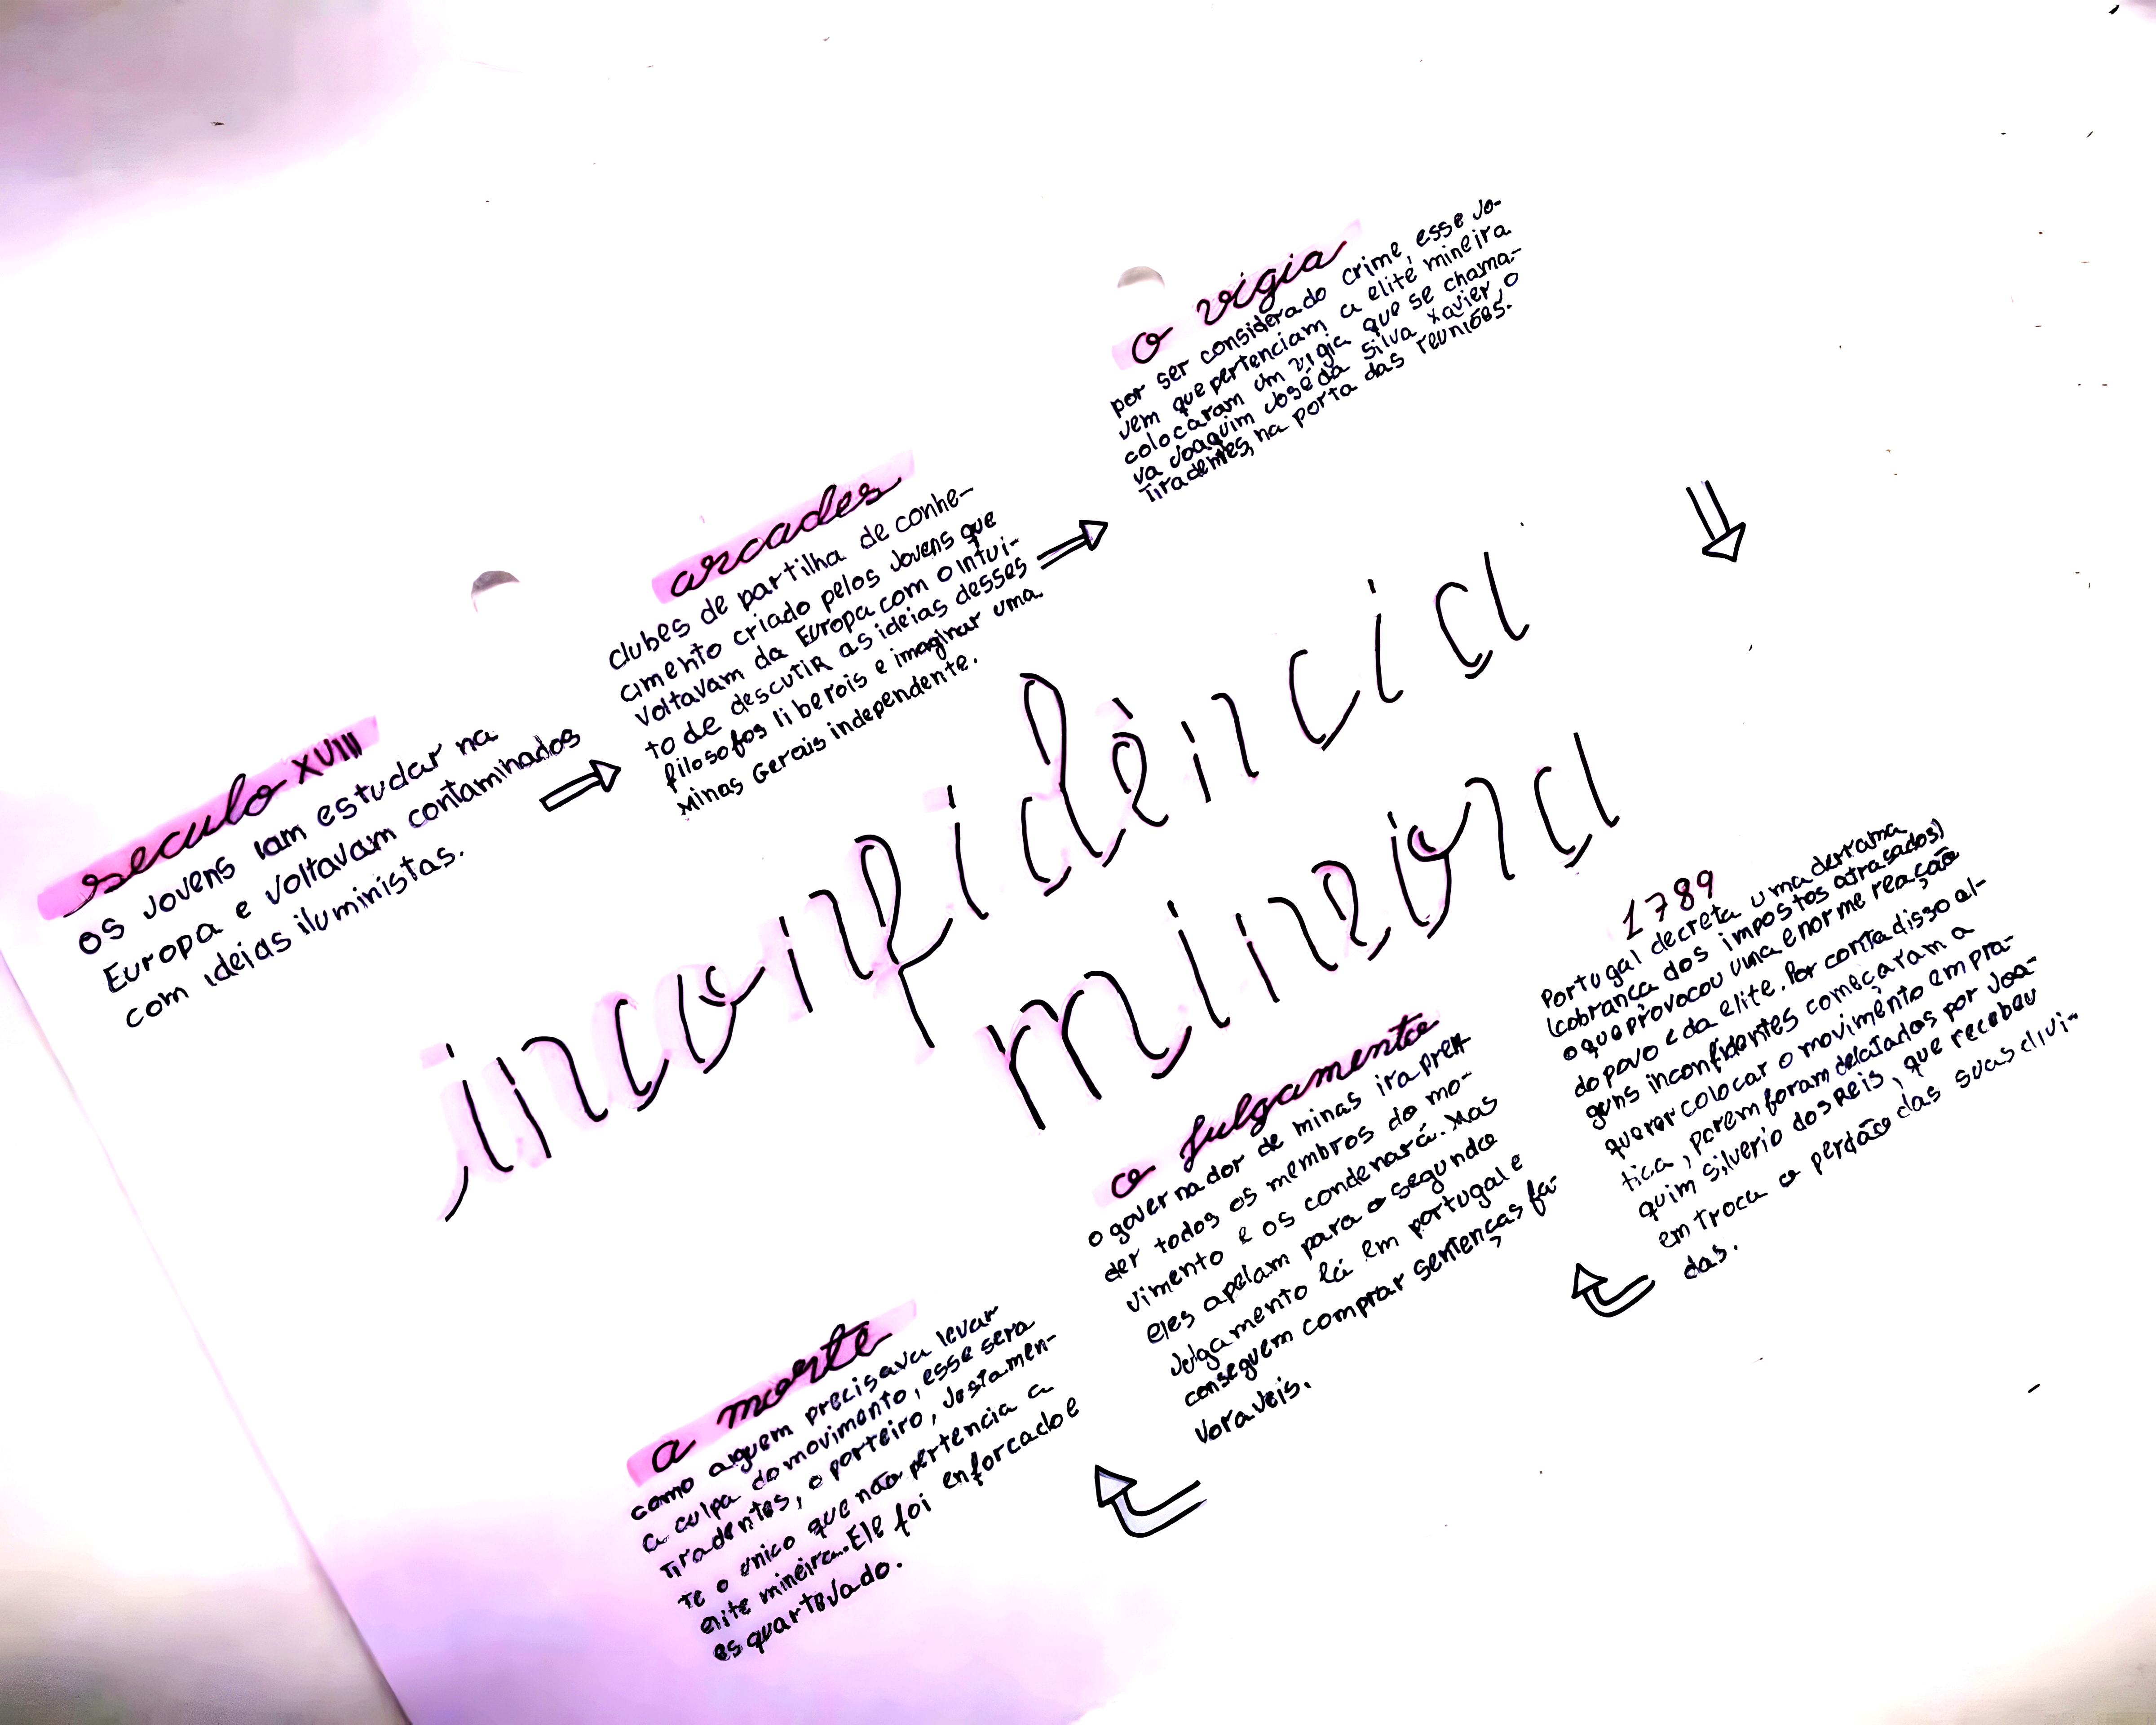 seculo XVIII
os jovens iam estudar na
Europa e voltavam contaminados
com ideias iluministas.
arcades
clubes de partilha de conhe-
cimento criado pelos jovens que
voltavam da Europa com o intui-
to de descutir as ideias desses
filosofos liberois e imaginar uma
Minas Gerais independente.
o vigia
por ser considerado crime, esse jo-
vem que pertenciam a elite mineira
colocaram um vigia que se chama-
va Joaquim José da Silva Xavier, o
Tiradentes, na porta das reuniões.
inconfidência
mineira
1789
Portugal decreta uma derrama
(cobranca dos impostos atrasados)
o que provocou uma enorme reação
do povo e da elite. Por conta disso al-
guns inconfidentes começaram a
querer colocar o movimento em pra-
tica, porem foram delatados por Joa-
quim Silverio dos Reis, que recebeu
em troca o perdão das suas divi-
das.
o julgamento
o governador de minas ira pren-
der todos os membros do mo-
vimento e os condenará. Mas
eles apelam para o segundo
julgamento lá em portugal e
conseguem comprar sentenças fa-
voraveis.
a morte
como alguem precisava levar
a culpa do movimento, esse sera
Tiradentes, o porteiro, justamen-
te o unico que não pertencia a
elite mineira. Ele foi enforcado e
esquartejado.